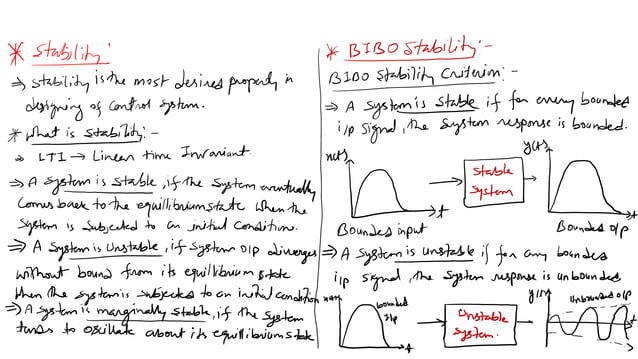 * Stability:
⇒ Stability is the most desired property in
designing of Control System.
* What is Stability:-
→ LTI → Linear time Invariant.
⇒ A System is Stable, if the System eventually
Comes back to the equilibrium state when the
System is Subjected to an initial Condition.
⇒ A System is Unstable, if System O/P diverges
without bound from its equilibrium State
When the System is Subjected to an initial Condition
⇒ A System is marginally Stable, if the System
tends to oscillate about its equilibrium State
* BIBO Stability:-
BIBO Stability Criterion:-
⇒ A System is Stable if for every bounded
i/p Signal, the System response is bounded.
x(t)
t
Bounded input
Stable
System
y(t)
t
Bounded O/P
⇒ A System is unstable if for any bounded
i/p Signal, the System response is unbounded
x(t)
bounded
i/p
t
Unstable
System.
y(t)
unbounded O/P
t